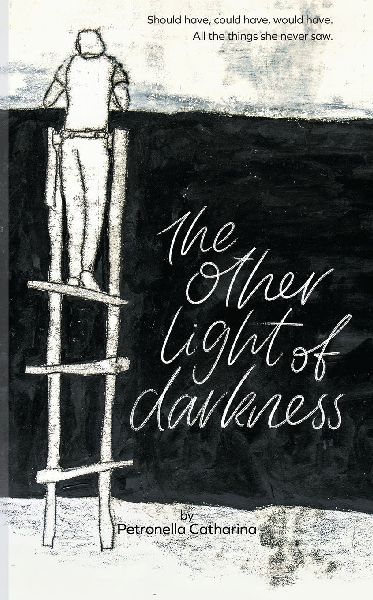 Should have, could have, would have.
All the things she never saw.
the
other
light of
darkness
by
Petronella Catharina